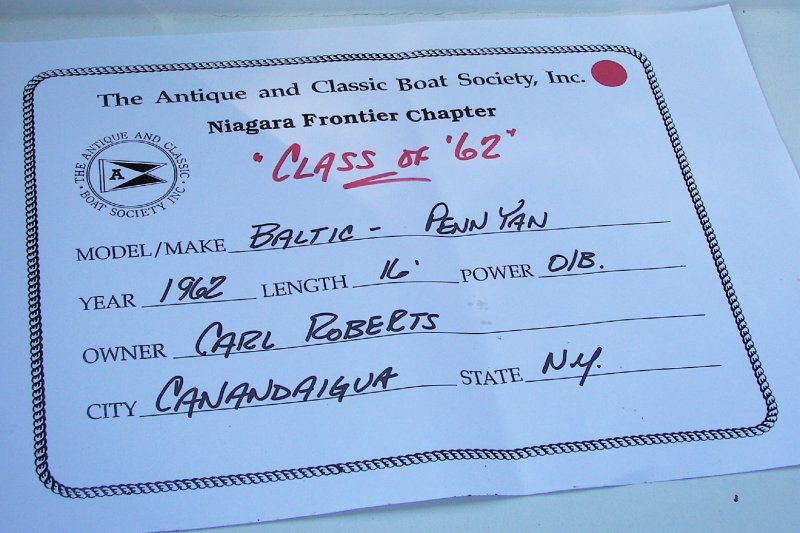 The Antique and Classic Boat Society, Inc.
Niagara Frontier Chapter
"CLASS OF '62"
THE ANTIQUE AND CLASSIC
A
BOAT SOCIETY INC
MODEL/MAKE BALTIC - PENN YAN
YEAR 1962 LENGTH 16' POWER O/B.
OWNER CARL ROBERTS
CITY CANANDAIGUA STATE N.Y.